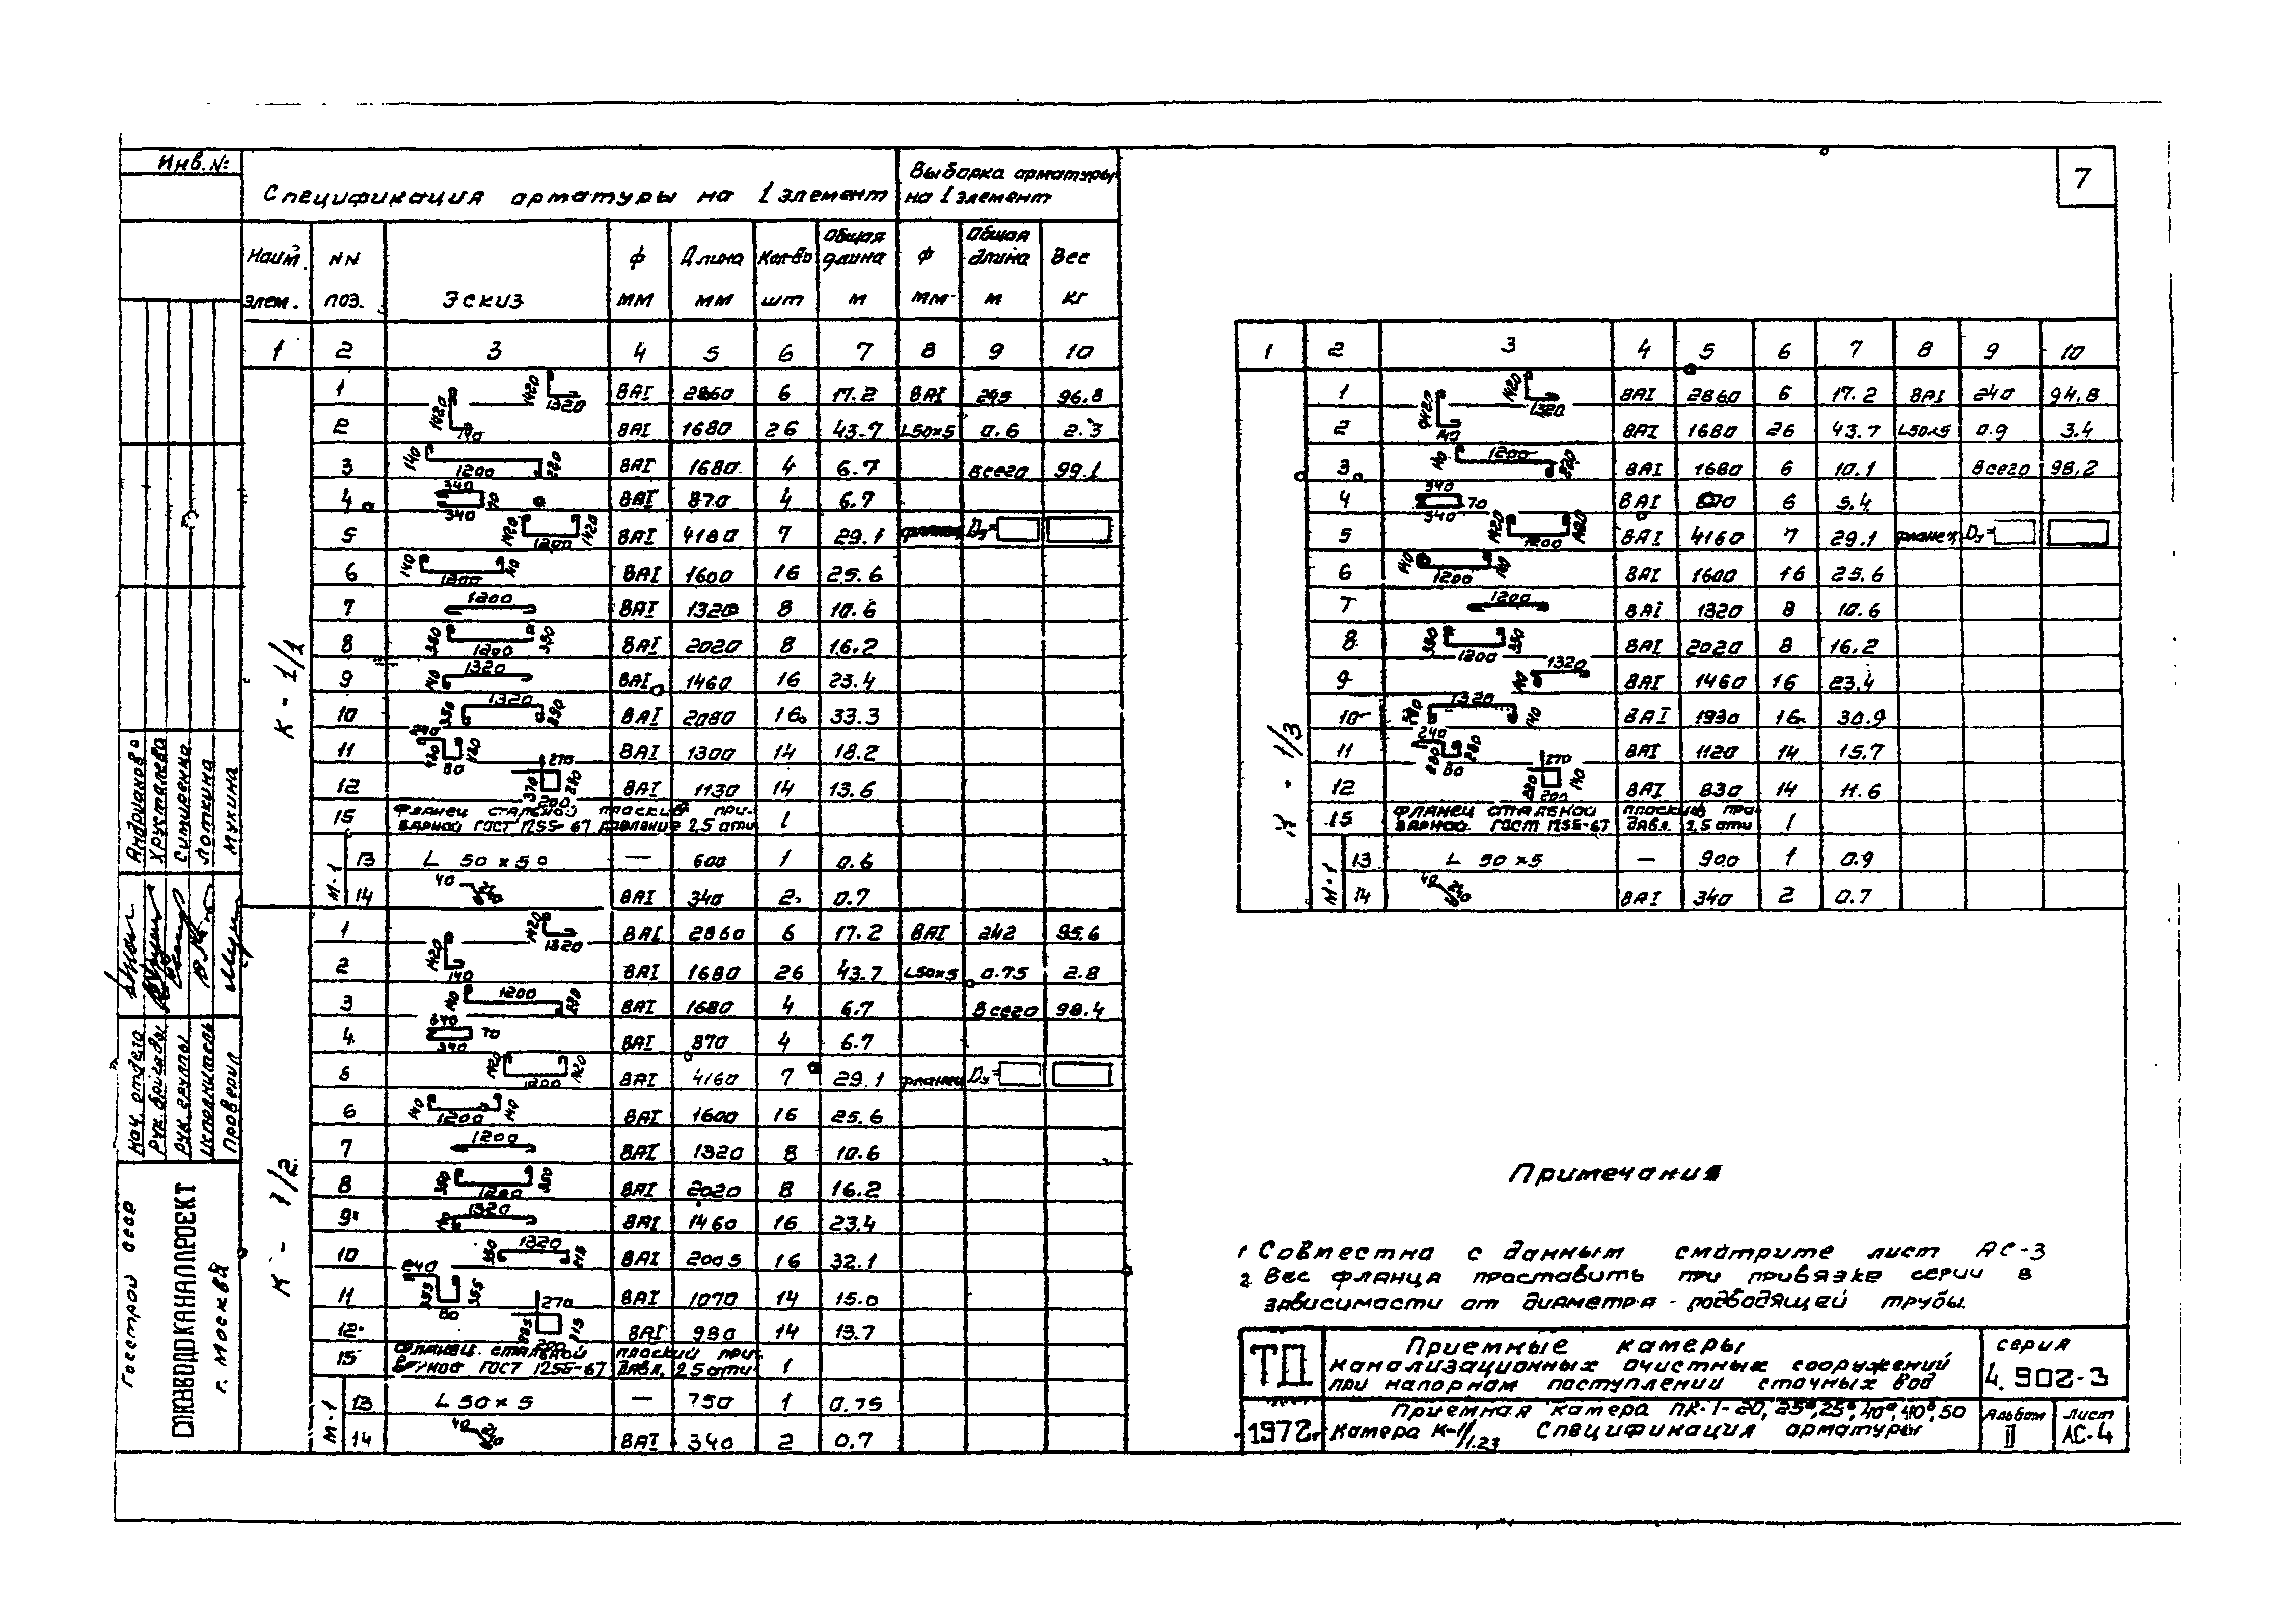 Инв. №:
7
Спецификация арматуры на 1 элемент
Выборка арматуры на 1 элемент
Наим. элем. | NN поз. | Эскиз | ф мм | Длина мм | Кол-во шт | Общая длина м | ф мм | Общая длина м | Вес кг
1 2 3 4 5 6 7 8 9 10
К - 1/1
1 1420 140 1420 1320 8АI 2860 6 17.2 8АI 245 96.8
2 8АI 1680 26 43.7 L50×5 0.6 2.3
3 140 1200 220 8АI 1680 4 6.7 Всего 99.1
4 340 340 70 8АI 870 4 6.7
5 1420 1200 1420 8АI 4160 7 29.1 фланец Dу=
6 140 1200 140 8АI 1600 16 25.6
7 1200 8АI 1320 8 10.6
8 350 1200 350 8АI 2020 8 16.2
9 140 1320 8АI 1460 16 23.4
10 350 1320 290 8АI 2080 16 33.3
11 240 80 8АI 1300 14 18.2
12 270 370 200 8АI 1130 14 13.6
15 Фланец стальной плоский при-
варной ГОСТ 1255-67 давление 2,5 ати 1
М-1
13 L 50 × 50 — 600 1 0.6
14 40 8АI 340 2 0.7
К - 1/2
1 1420 140 1420 1320 8АI 2860 6 17.2 8АI 242 95.6
2 8АI 1680 26 43.7 L50×5 0.75 2.8
3 140 1200 220 8АI 1680 4 6.7 Всего 98.4
4 340 340 70 8АI 870 4 6.7
5 1420 1200 1420 8АI 4160 7 29.1 фланец Dу=
6 140 1200 140 8АI 1600 16 25.6
7 1200 8АI 1320 8 10.6
8 350 1200 350 8АI 2020 8 16.2
9 140 1320 8АI 1460 16 23.4
10 350 1320 215 8АI 2005 16 32.1
11 240 355 80 355 8АI 1070 14 15.0
12 270 8АI 980 14 13.7
15 Фланец стальной плоский при-
варной ГОСТ 1255-67 давл. 2,5 ати 1
М-1
13 L 50 × 5 — 750 1 0.75
14 40 8АI 340 2 0.7
1 2 3 4 5 6 7 8 9 10
К - 1/3
1 1420 140 1420 1320 8АI 2860 6 17.2 8АI 240 94.8
2 8АI 1680 26 43.7 L50×5 0.9 3.4
3 140 1200 220 8АI 1680 6 10.1 Всего 98.2
4 340 340 70 8АI 870 6 5.4
5 1420 1200 1420 8АI 4160 7 29.1 фланец Dу=
6 140 1200 140 8АI 1600 16 25.6
7 1200 8АI 1320 8 10.6
8 350 1200 350 8АI 2020 8 16.2
9 140 1320 8АI 1460 16 23.4
10 1320 140 8АI 1930 16 30.9
11 240 280 80 280 8АI 1120 14 15.7
12 270 220 200 140 8АI 830 14 11.6
15 Фланец стальной плоский при-
варной. ГОСТ 1255-67 давл. 2,5 ати 1
М-1
13 L 50 ×5 — 900 1 0.9
14 40 8АI 340 2 0.7
Примечания
1 Совместно с данным смотрите лист АС-3
2 Вес фланца проставить при привязке серии в
зависимости от диаметра подводящей трубы.
ТП
Приемные камеры
канализационных очистных сооружений
при напорном поступлении сточных вод
серия
4.902-3
1972г.
Приемная камера ПК-1-20, 25а, 25б, 40а, 40б, 50
Камера К-1/1.2.3 Спецификация арматуры
Альбом
II
лист
АС-4
Андрианов
Хрусталева
Симиренко
Лоткина
Мухина
Нач. отдела
Рук. бригады
Рук. группы
Исполнитель
Проверил
Госстрой СССР
СОЮЗВОДОКАНАЛПРОЕКТ
г. Москва